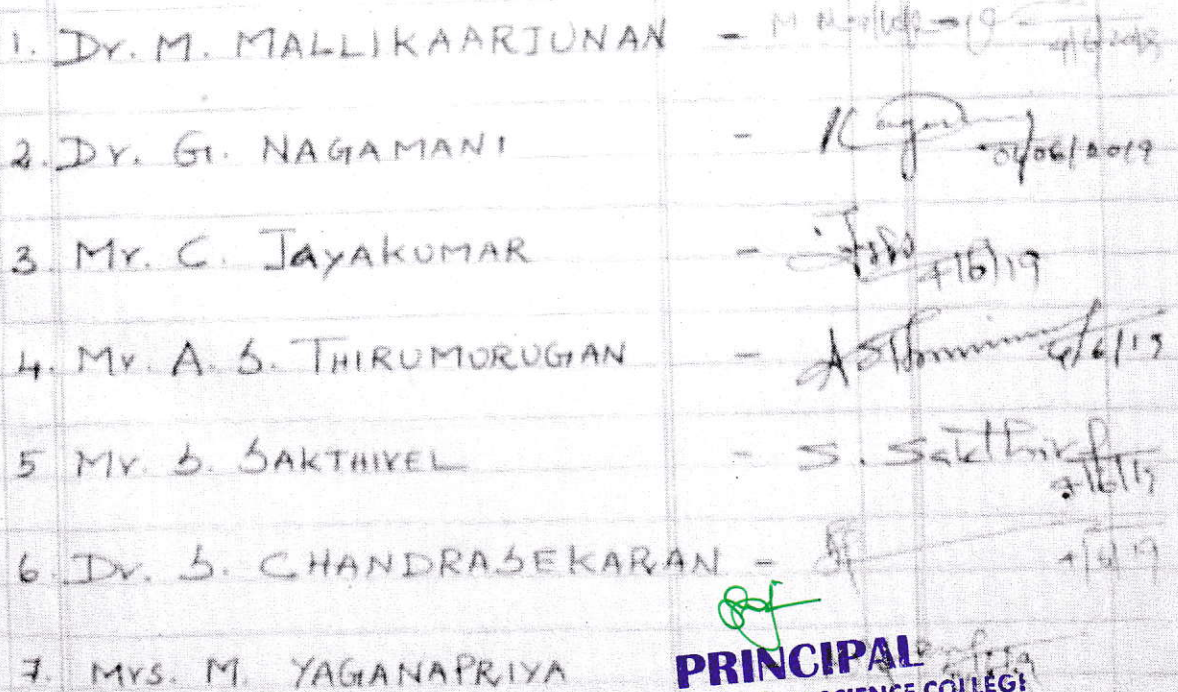 1. Dr. M. MALLIKAARJUNAN -
2. Dr. G. NAGAMANI - 04/06/2019
3. Mr. C. JAYAKUMAR - 4/6/19
4. Mr. A. S. THIRUMURUGAN - 4/6/19
5 Mr. S. SAKTHIVEL - S. Sakthivel 4/6/19
6. Dr. S. CHANDRASEKARAN - 4/6/19
7. Mrs. M. YAGANAPRIYA
PRINCIPAL
SCIENCE COLLEGE